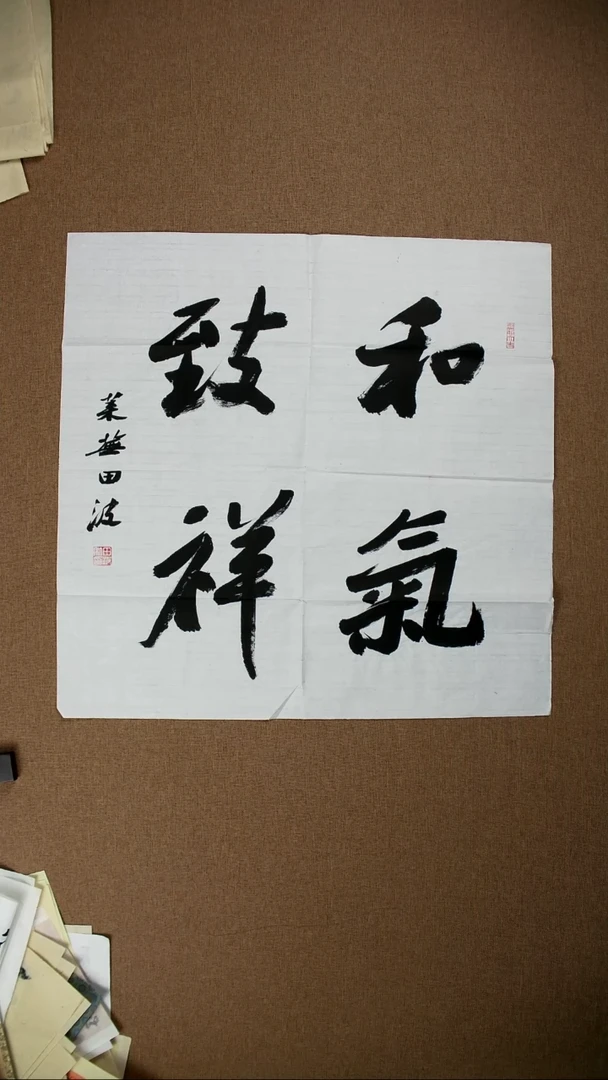 和氣
致祥
莱蕪田波